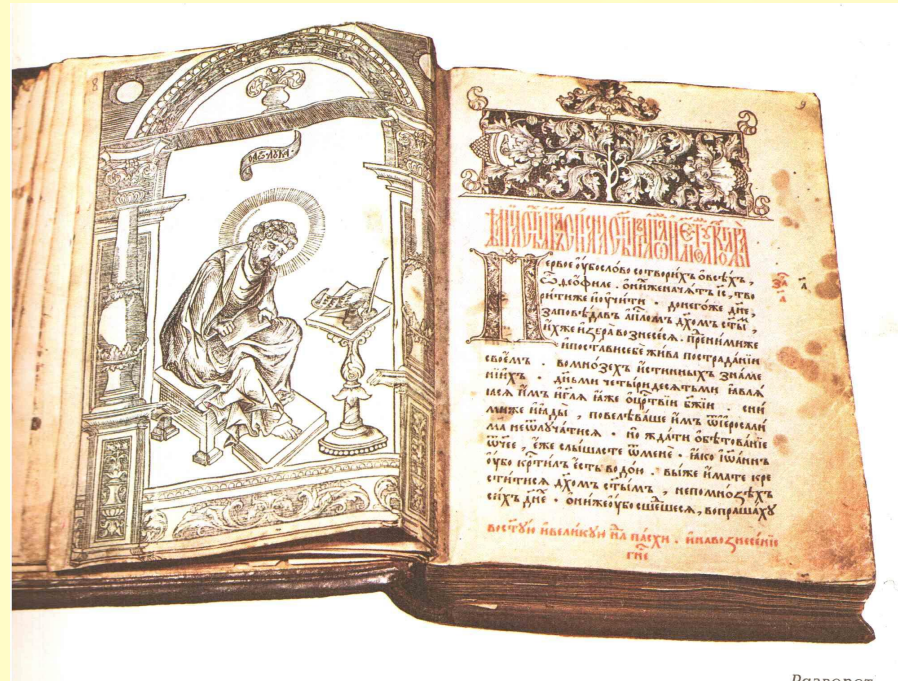 8
9
Первое ѹ҆бо сло́во сотвори́хъ ѡ҆ всѣ́хъ,
ѽ Ѳео́филе. ѡ҆ ни́хже начѧ́тъ і҆с, тво
ри́ти же и҆ ѹ҆чи́ти. до него́же дн҃е,
заповѣ́давъ а҆пⷭ҇ломъ дх҃омъ ст҃ы́мъ,
и҆́хже и҆збра̀ вознесе́сѧ. пред ни́миже
и҆ поста́ви себѐ жи́ва по страда́нїи
свое́мъ. во мно́зехъ и҆́стинныхъ зна́ме
нїихъ. дн҃ьми четы́ридесѧтьми ꙗ҆влѧ́
ѧсѧ и҆̀мъ и҆ гл҃ѧ ꙗ҆́же ѡ҆ црⷭ҇твїи бж҃їи. с ни́
миже и҆ ꙗ҆ды̀, повелѣва́ше и҆̀мъ ѿ і҆еросали́
ма не ѿлуча́тисѧ. но жда́ти ѡ҆бѣтова́нїе
ѿчее, є҆́же слы́шасте ѿ менє̀. ꙗ҆́ко і҆ѡа́ннъ
ѹ҆́бо крⷭ҇ти́лъ є҆́сть водо́ю. вы́ же и҆́мате кре
сти́тисѧ дх҃омъ ст҃ы́мъ, не по мно́ѕѣхъ
си́хъ дн҃е. ѡ҆ни́ же ѹ҆́бо сше́дшесѧ, вопраша́хѹ
во ст҃ѹ́ю и҆ вели́кѹю нⷣлю па́схи. и҆ на вознесе́нїе
гн҃е
Разворот